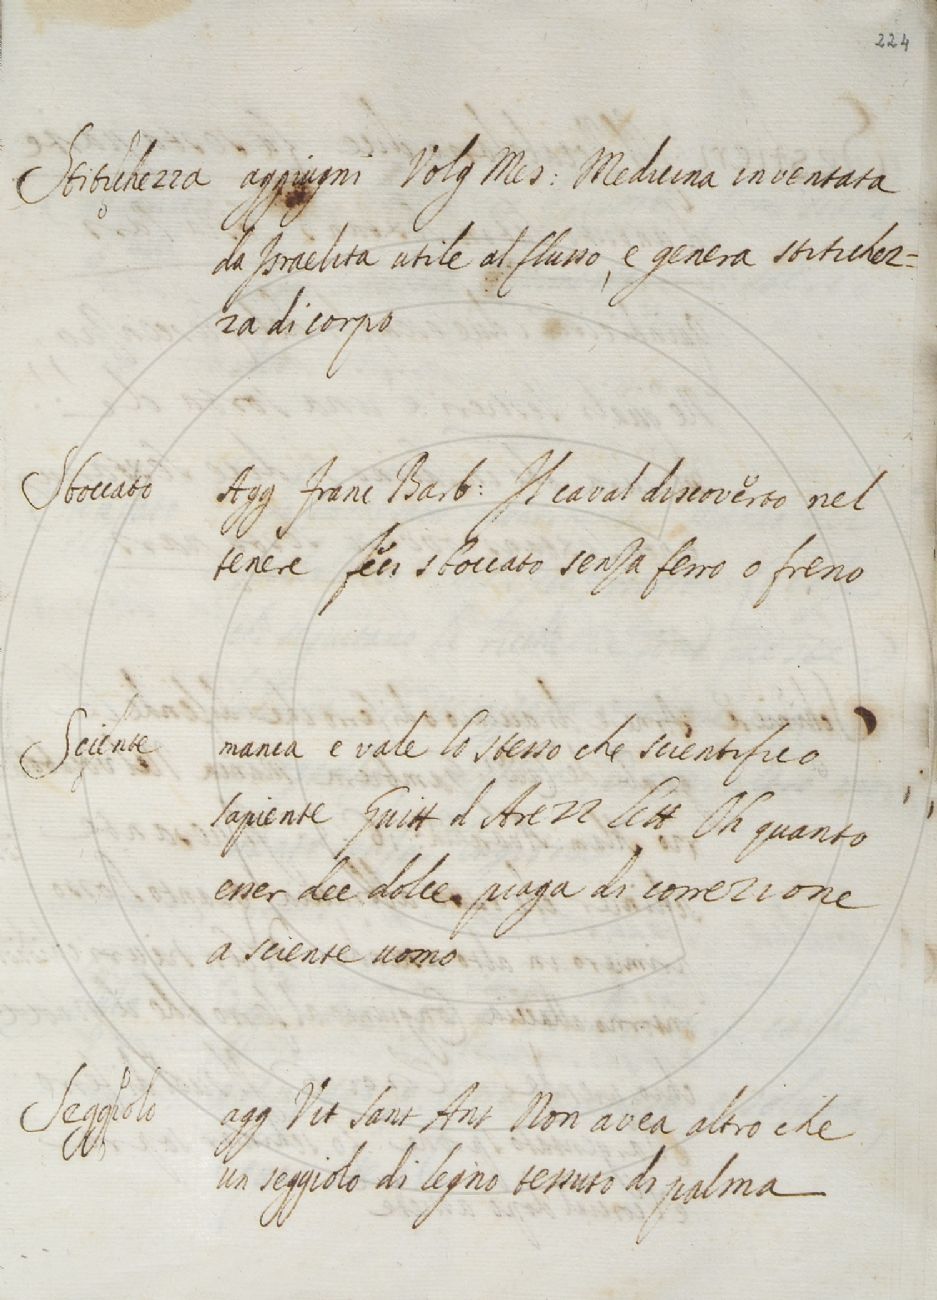 224
Stitichezza aggiugni Volg Mes: Medicina inventata
da Israelita utile al flusso, e genera stitichez=
za di corpo
Sboccato Agg Franc Barb: Il caval discoverto nel
tenere sboccato senza ferro o freno
Sciente manca e vale lo stesso che scientifico
sapiente Guitt d Arezz Lett Oh quanto
esser dee dolce piaga di correzione
a sciente uomo
Seggiolo agg Vit Sant Ant Non avea altro che
un seggiolo di legno tessuto di palma